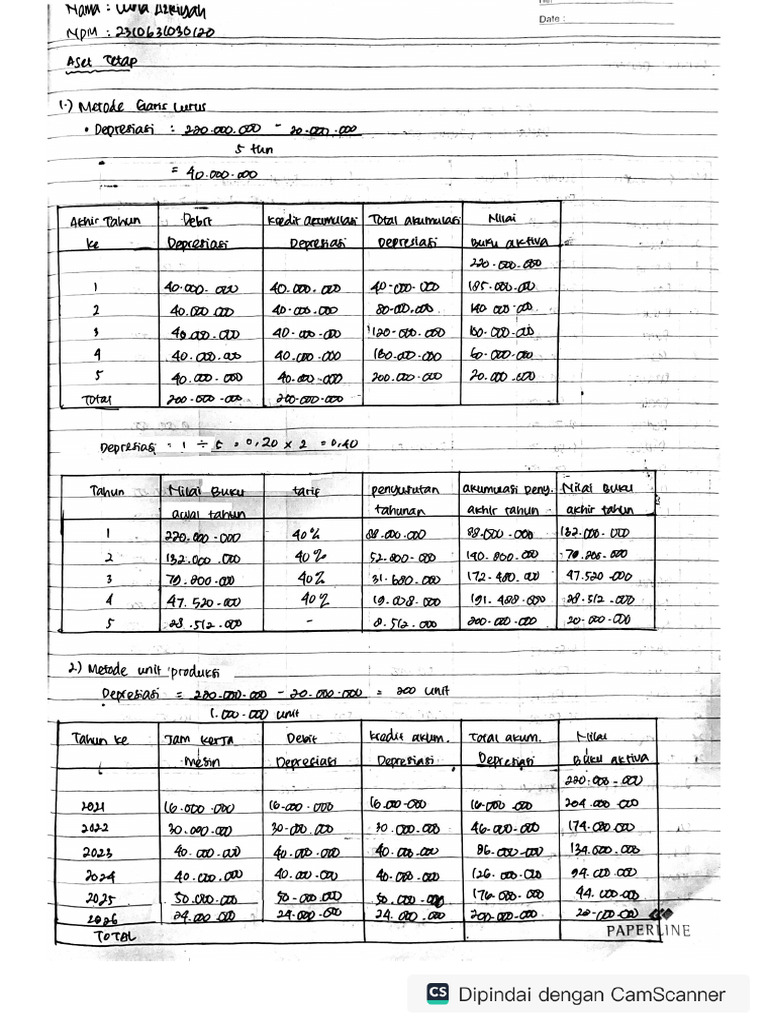 Nama : Luna Azkiyah
NPM : 2310631030120
Date :
Aset Tetap
1.) Metode Garis Lurus
• Depresiasi : 220.000.000 - 20.000.000
5 tun
= 40.000.000
Akhir Tahun Debit Kredit akumulasi Total akumulasi Nilai
ke Depresiasi Depresiasi Depresiasi Buku aktiva
220.000.000
1 40.000.000 40.000.000 40.000.000 185.000.000
2 40.000.000 40.000.000 80.000.000 140.000.000
3 40.000.000 40.000.000 120.000.000 100.000.000
4 40.000.000 40.000.000 160.000.000 60.000.000
5 40.000.000 40.000.000 200.000.000 20.000.000
Total 200.000.000 200.000.000
Depresiasi = 1 ÷ 5 = 0,20 x 2 = 0,40
Tahun Nilai Buku tarif penyusutan akumulasi Peny. Nilai Buku
awal tahun tahunan akhir tahun akhir tahun
1 220.000.000 40% 88.000.000 88.000.000 132.000.000
2 132.000.000 40% 52.800.000 140.800.000 79.200.000
3 79.200.000 40% 31.680.000 172.480.000 47.520.000
4 47.520.000 40% 19.008.000 191.488.000 28.512.000
5 28.512.000 - 8.512.000 200.000.000 20.000.000
2.) Metode unit produksi
Depresiasi = 220.000.000 - 20.000.000 = 200 unit
1.000.000 unit
Tahun ke Jam kerja Debit kredit akum. Total akum. Nilai
Mesin Depresiasi Depresiasi Depresiasi Buku aktiva
220.000.000
2021 16.000.000 16.000.000 16.000.000 16.000.000 204.000.000
2022 30.000.000 30.000.000 30.000.000 46.000.000 174.000.000
2023 40.000.000 40.000.000 40.000.000 86.000.000 134.000.000
2024 40.000.000 40.000.000 40.000.000 126.000.000 94.000.000
2025 50.000.000 50.000.000 50.000.000 176.000.000 44.000.000
2026 24.000.000 24.000.000 24.000.000 200.000.000 20.000.000
TOTAL
PAPERLINE
CS Dipindai dengan CamScanner